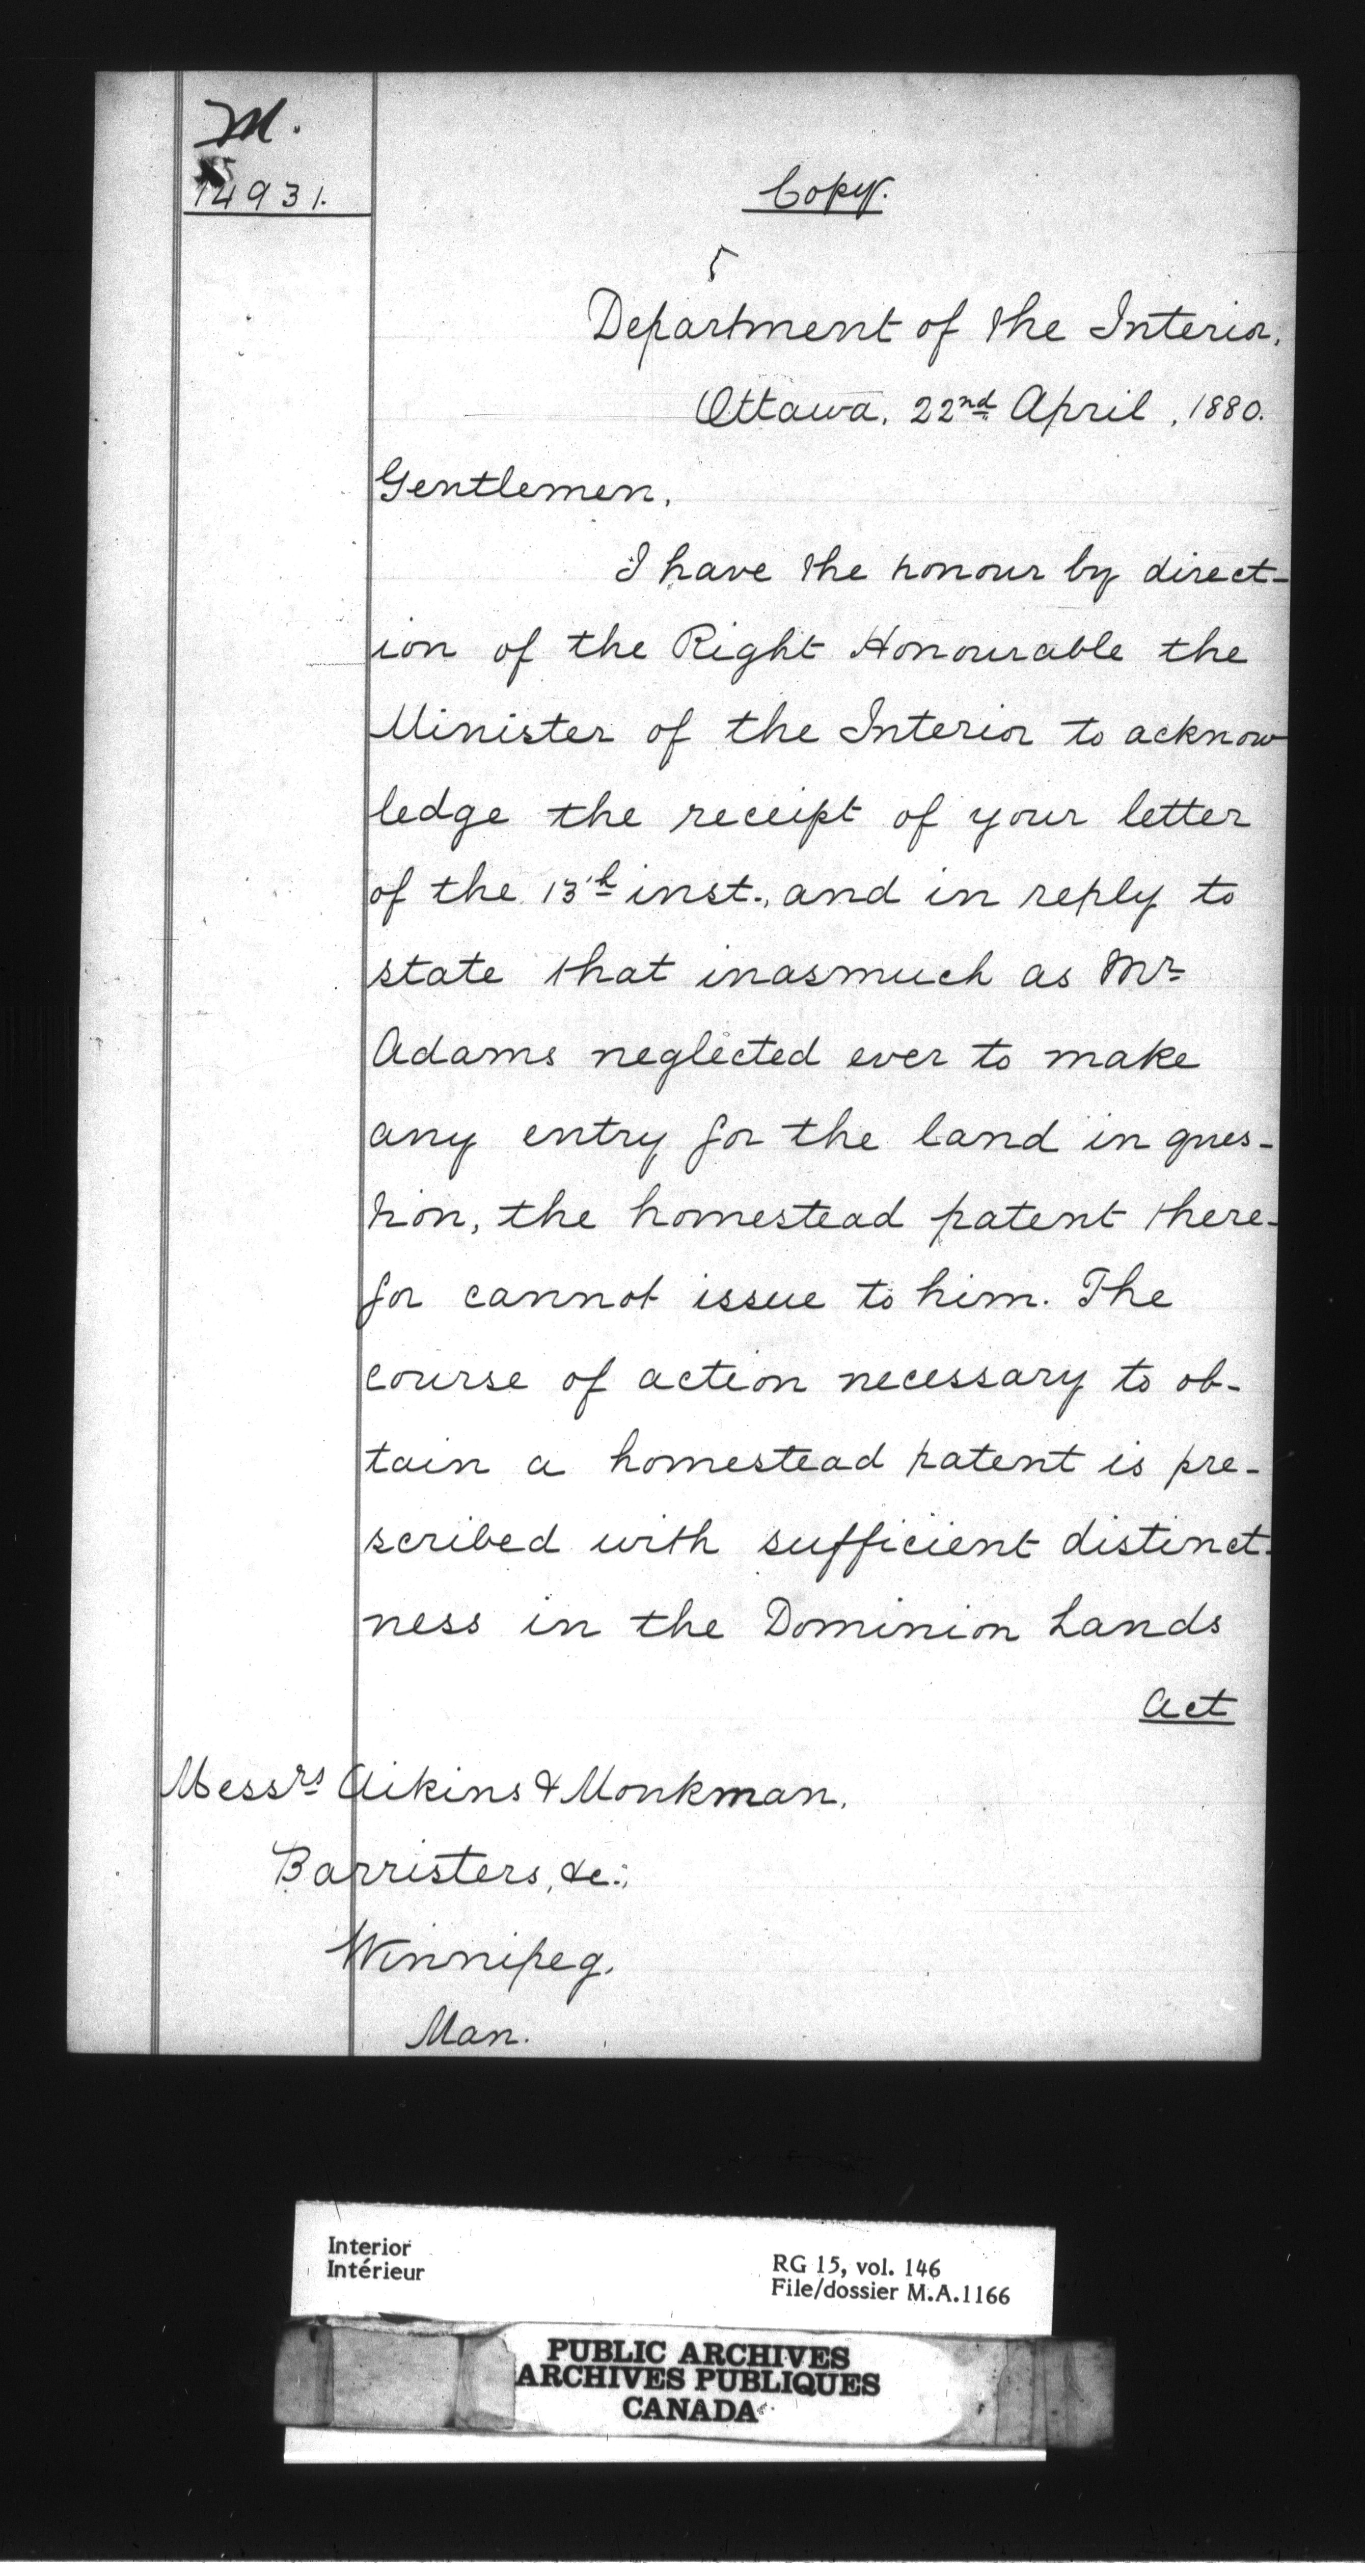 M.
14931.
Copy.
5
Department of the Interior,
Ottawa, 22nd April, 1880.
Gentlemen,
I have the honour by direct-
ion of the Right Honourable the
Minister of the Interior to acknow
ledge the receipt of your letter
of the 13th inst., and in reply to
state that inasmuch as Mr
Adams neglected ever to make
any entry for the land in ques-
tion, the homestead patent there-
for cannot issue to him. The
course of action necessary to ob-
tain a homestead patent is pre-
scribed with sufficient distinct-
ness in the Dominion Lands
Act
Messrs Aikins & Monkman,
Barristers, &c.,
Winnipeg,
Man.
Interior
Intérieur
RG 15, vol. 146
File/dossier M.A.1166
PUBLIC ARCHIVES
ARCHIVES PUBLIQUES
CANADA